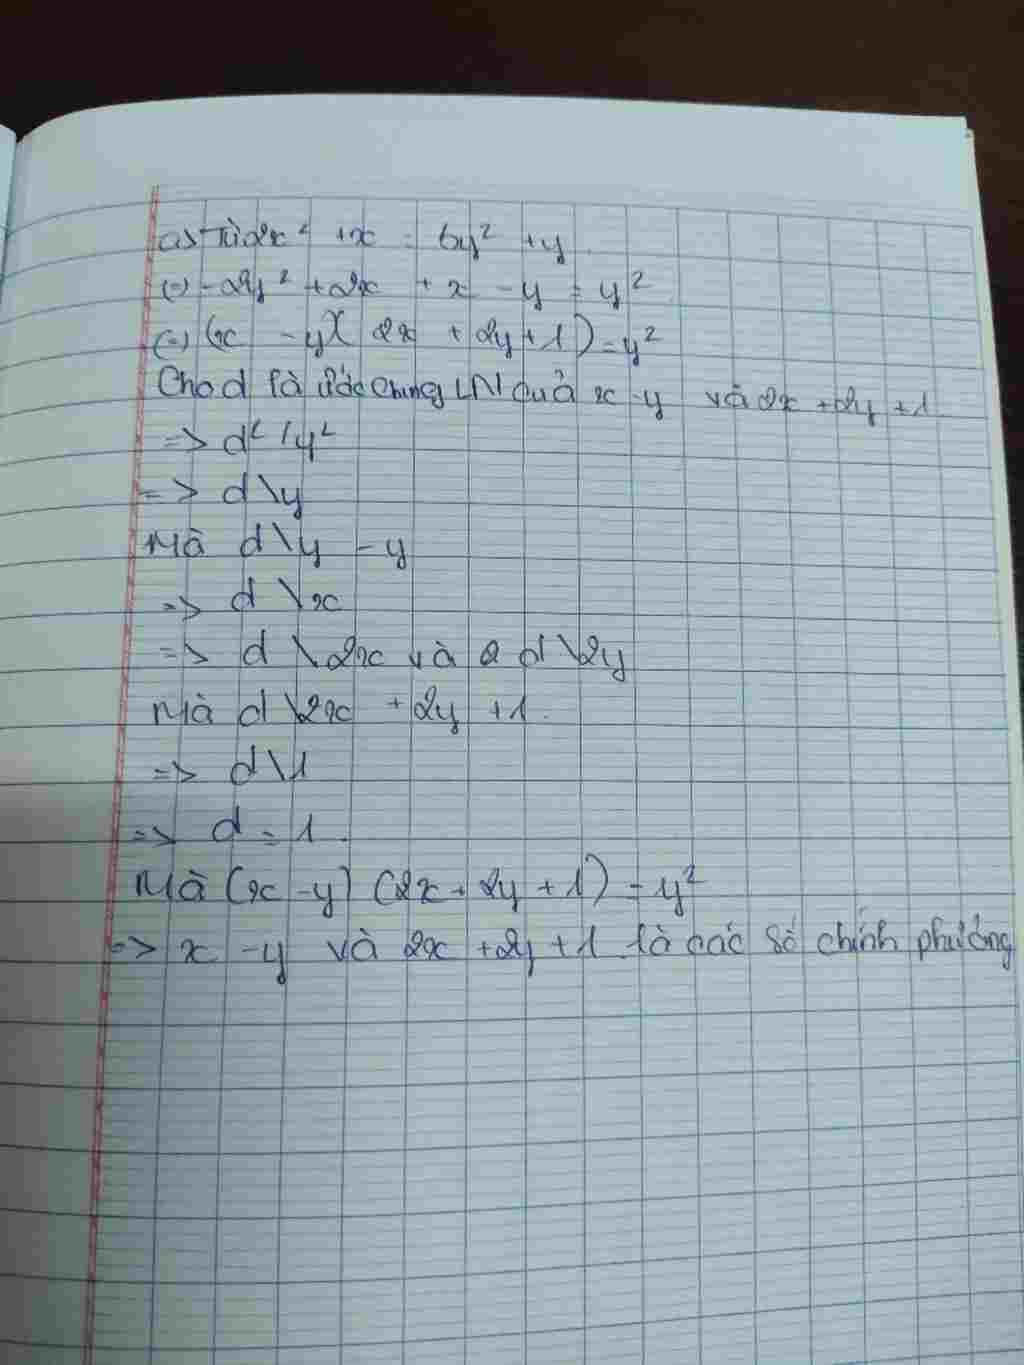 a) Từ 2x² + x = 6y² + y
(=) -2y² + 2x + x - y = y²
(=) (x - y)( 2x + 2y + 1) = y²
Cho d là ước chung LN quả x - y và 2x + 2y + 1
=> d² / y²
=> d \ y
Mà d \ y - y
=> d \ x
=> d \ 2x và d \ 2y
Mà d \ 2x + 2y + 1.
=> d \ 1
=> d = 1.
Mà (x - y) (2x + 2y + 1) = y²
=> x - y và 2x + 2y + 1 là các số chính phương